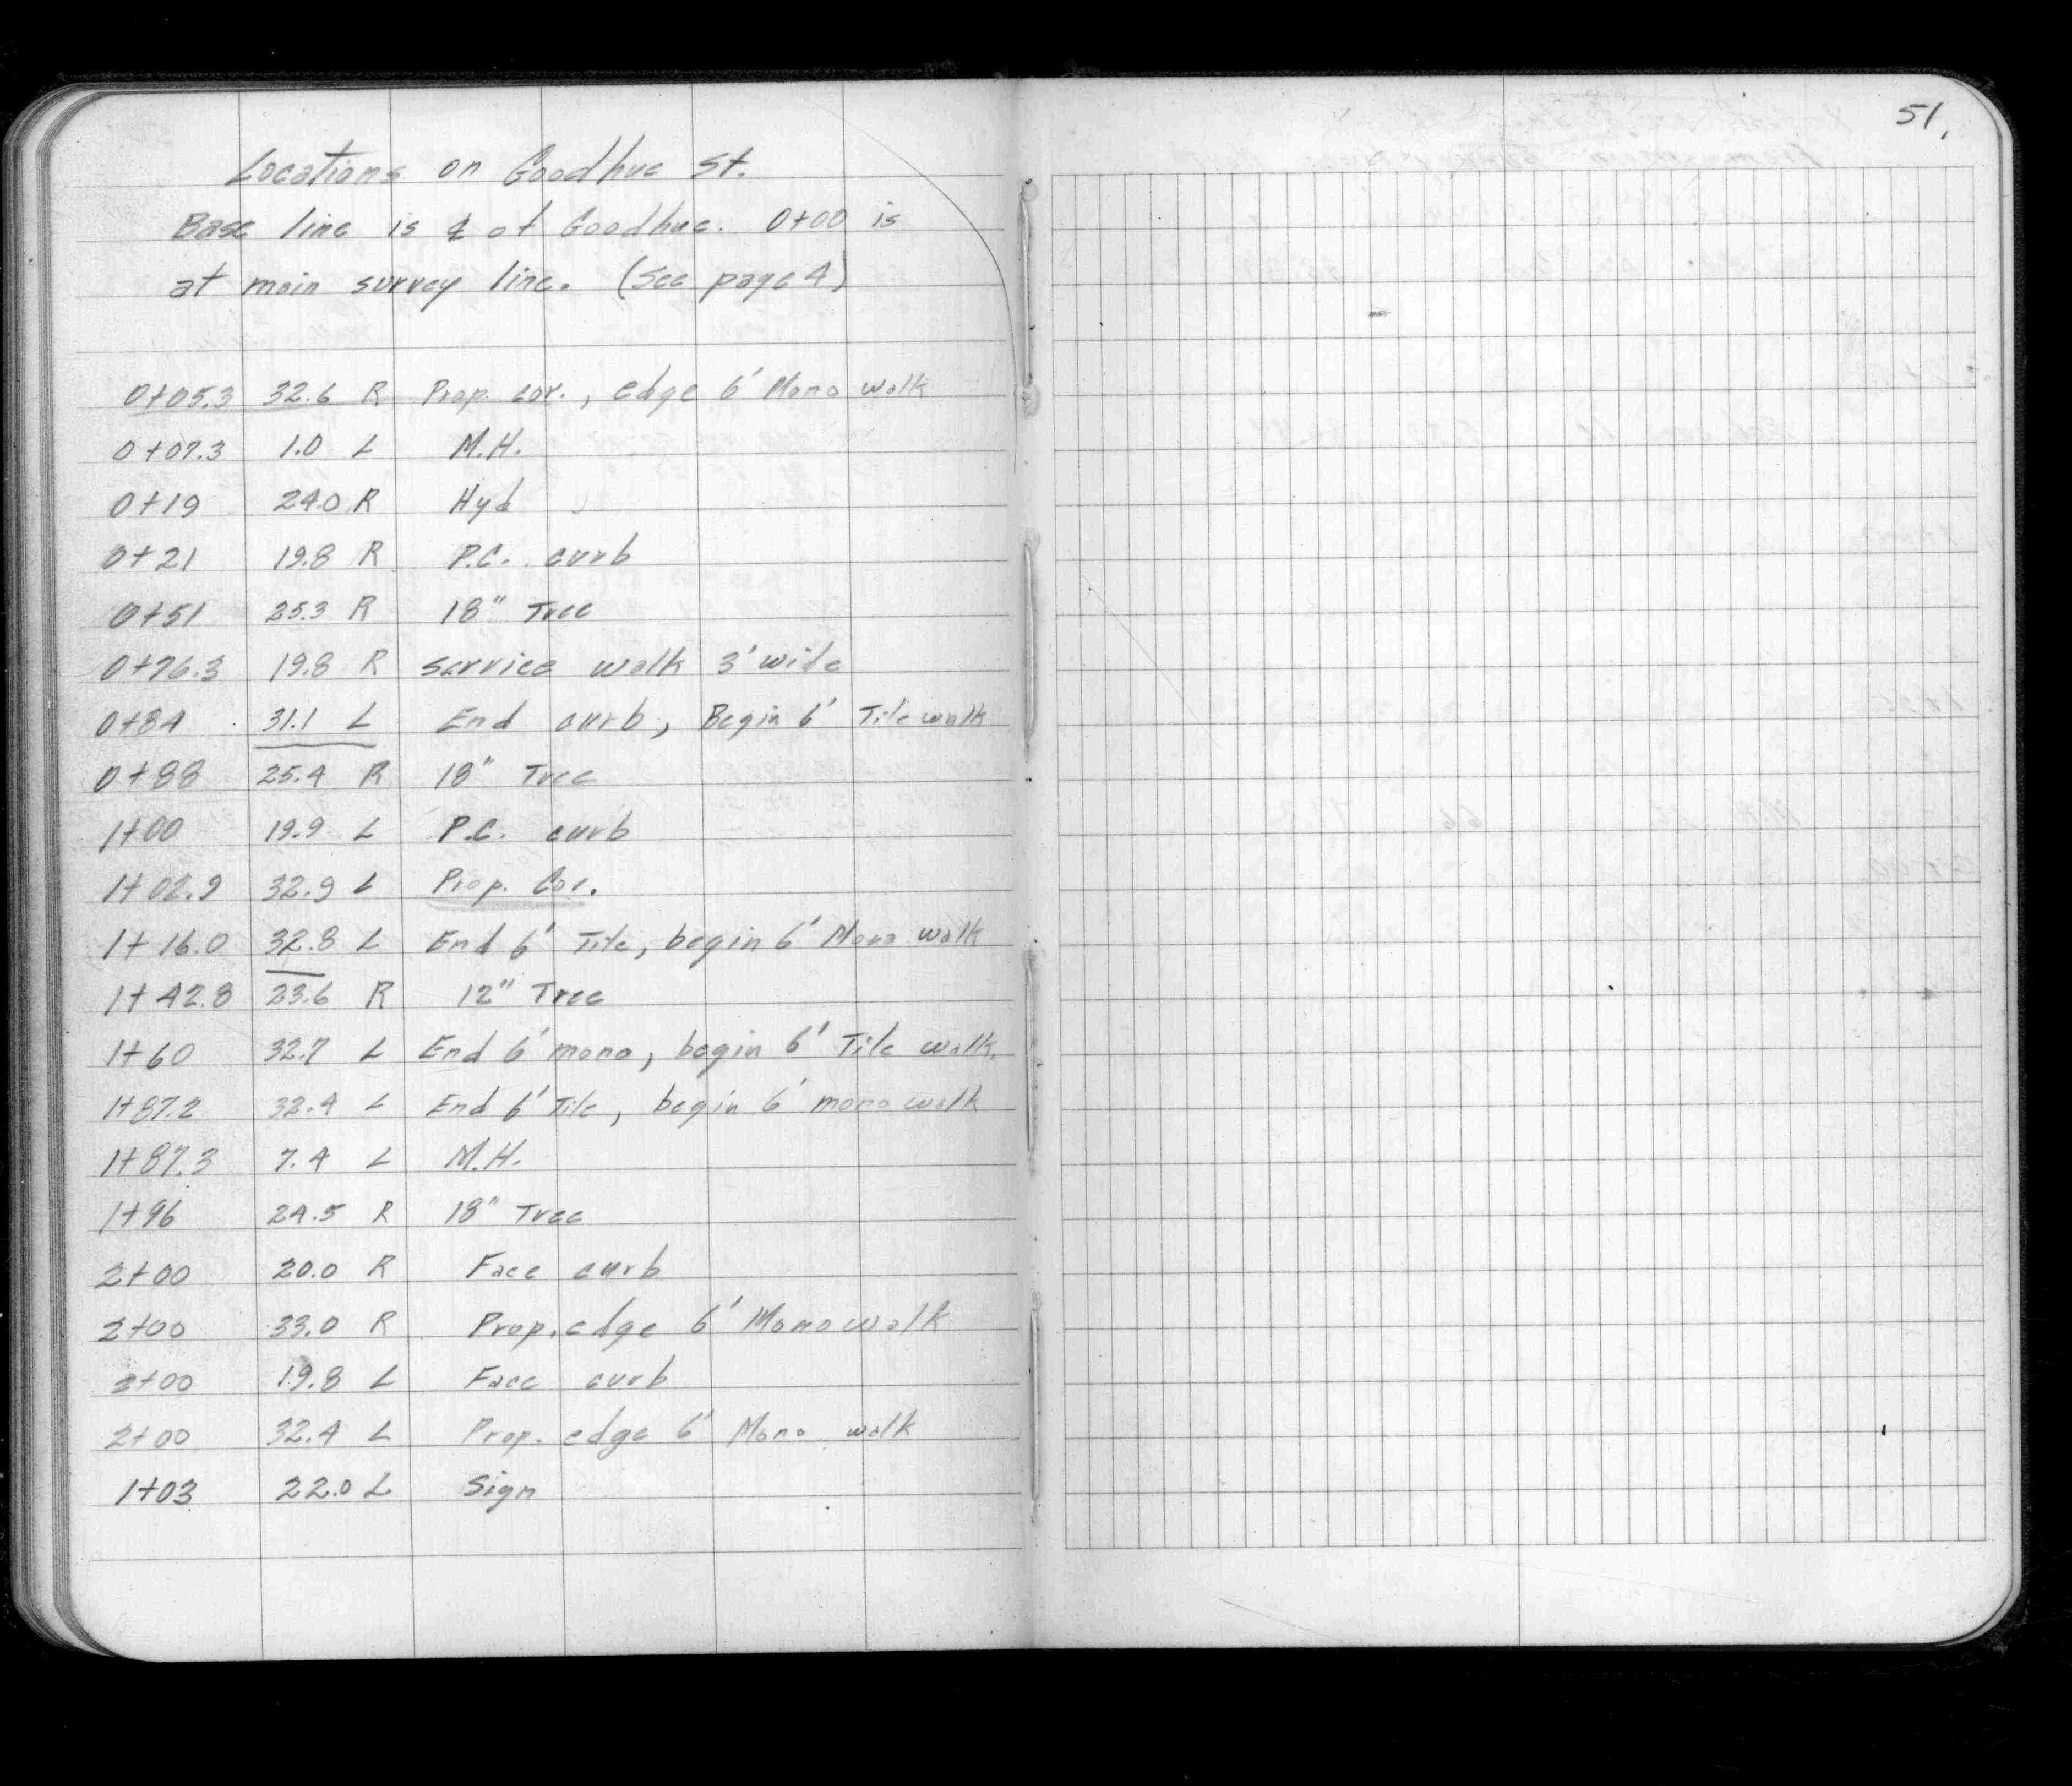 51.
Locations on Goodhue St.
Base line is ℄ of Goodhue. 0+00 is
at main survey line. (See page 4)
0+05.3 32.6 R Prop. cor., edge 6' Mono walk
0+07.3 1.0 L M.H.
0+19 24.0 R Hyd
0+21 19.8 R P.C. curb
0+51 25.3 R 18" Tree
0+76.3 19.8 R service walk 3' wide
0+84 31.1 L End curb, Begin 6' Tile walk
0+88 25.4 R 18" Tree
1+00 19.9 L P.C. curb
1+02.9 32.9 L Prop. Cor.
1+16.0 32.8 L End 6' Tile, begin 6' Mono walk
1+42.8 23.6 R 12" Tree
1+60 32.7 L End 6' mono, begin 6' Tile walk.
1+87.2 32.4 L End 6' Tile, begin 6' mono walk
1+87.3 7.4 L M.H.
1+96 24.5 R 18" Tree
2+00 20.0 R Face curb
2+00 33.0 R Prop. edge 6' Mono walk
2+00 19.8 L Face curb
2+00 32.4 L Prop. edge 6' Mono walk
1+03 22.0 L Sign